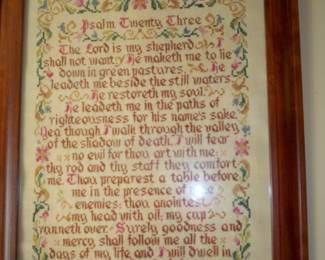 Psalm Twenty Three
The Lord is my shepherd I
shall not want He maketh me to lie
down in green pastures He
leadeth me beside the still waters
He restoreth my soul
He leadeth me in the paths of
righteousness for his name's sake
Yea though I walk through the valley
of the shadow of death, I will fear
no evil for thou art with me
thy rod and thy staff they comfort
me. Thou preparest a table before
me in the presence of mine
enemies: thou anointest
my head with oil; my cup
runneth over. Surely goodness and
mercy shall follow me all the
days of my life and I will dwell in